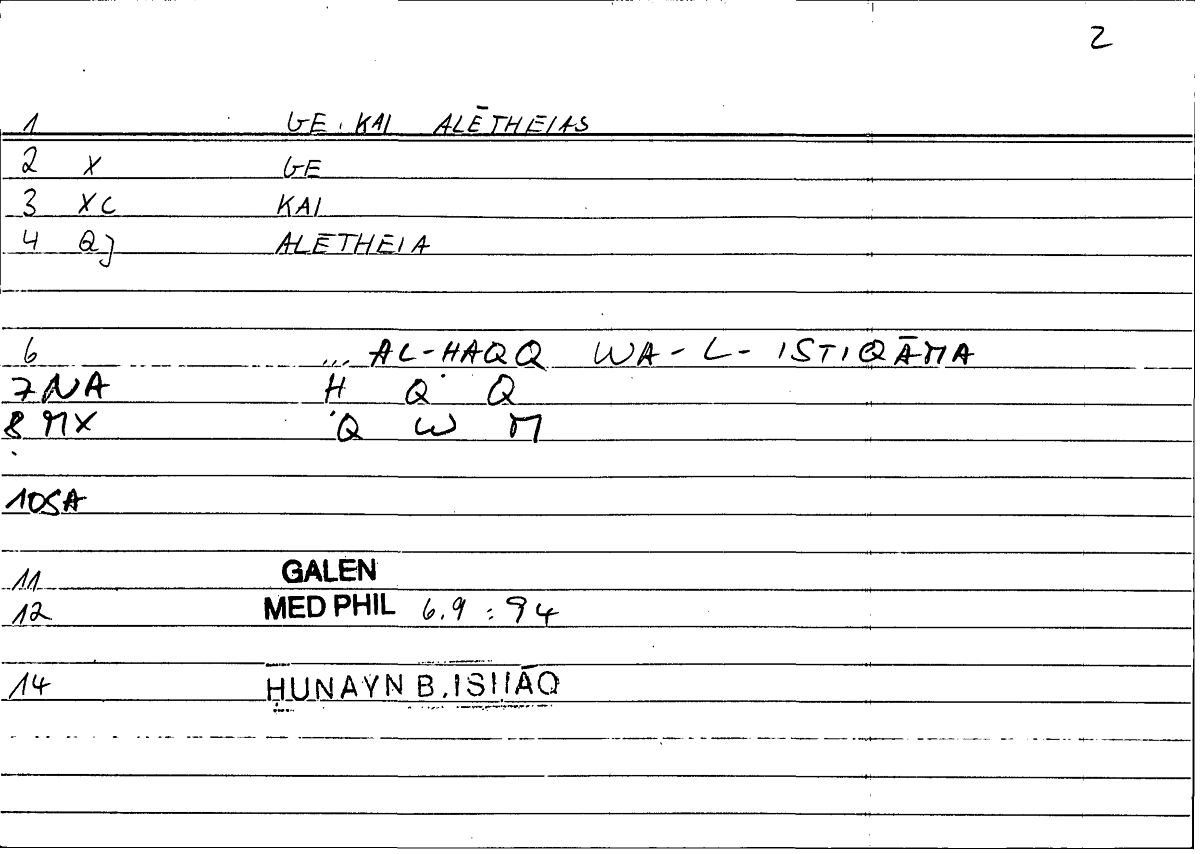 2
1 GE KAI ALĒTHEIAS
2 X GE
3 XC KAI
4 QJ ALĒTHEIA
6 ... AL-HAQQ WA-L-ISTIQĀMA
7 NA H Q Q
8 MX Q W M
10 SA
11 GALEN
12 MED PHIL 6.9 : 94
14 HUNAYN B. ISHĀQ